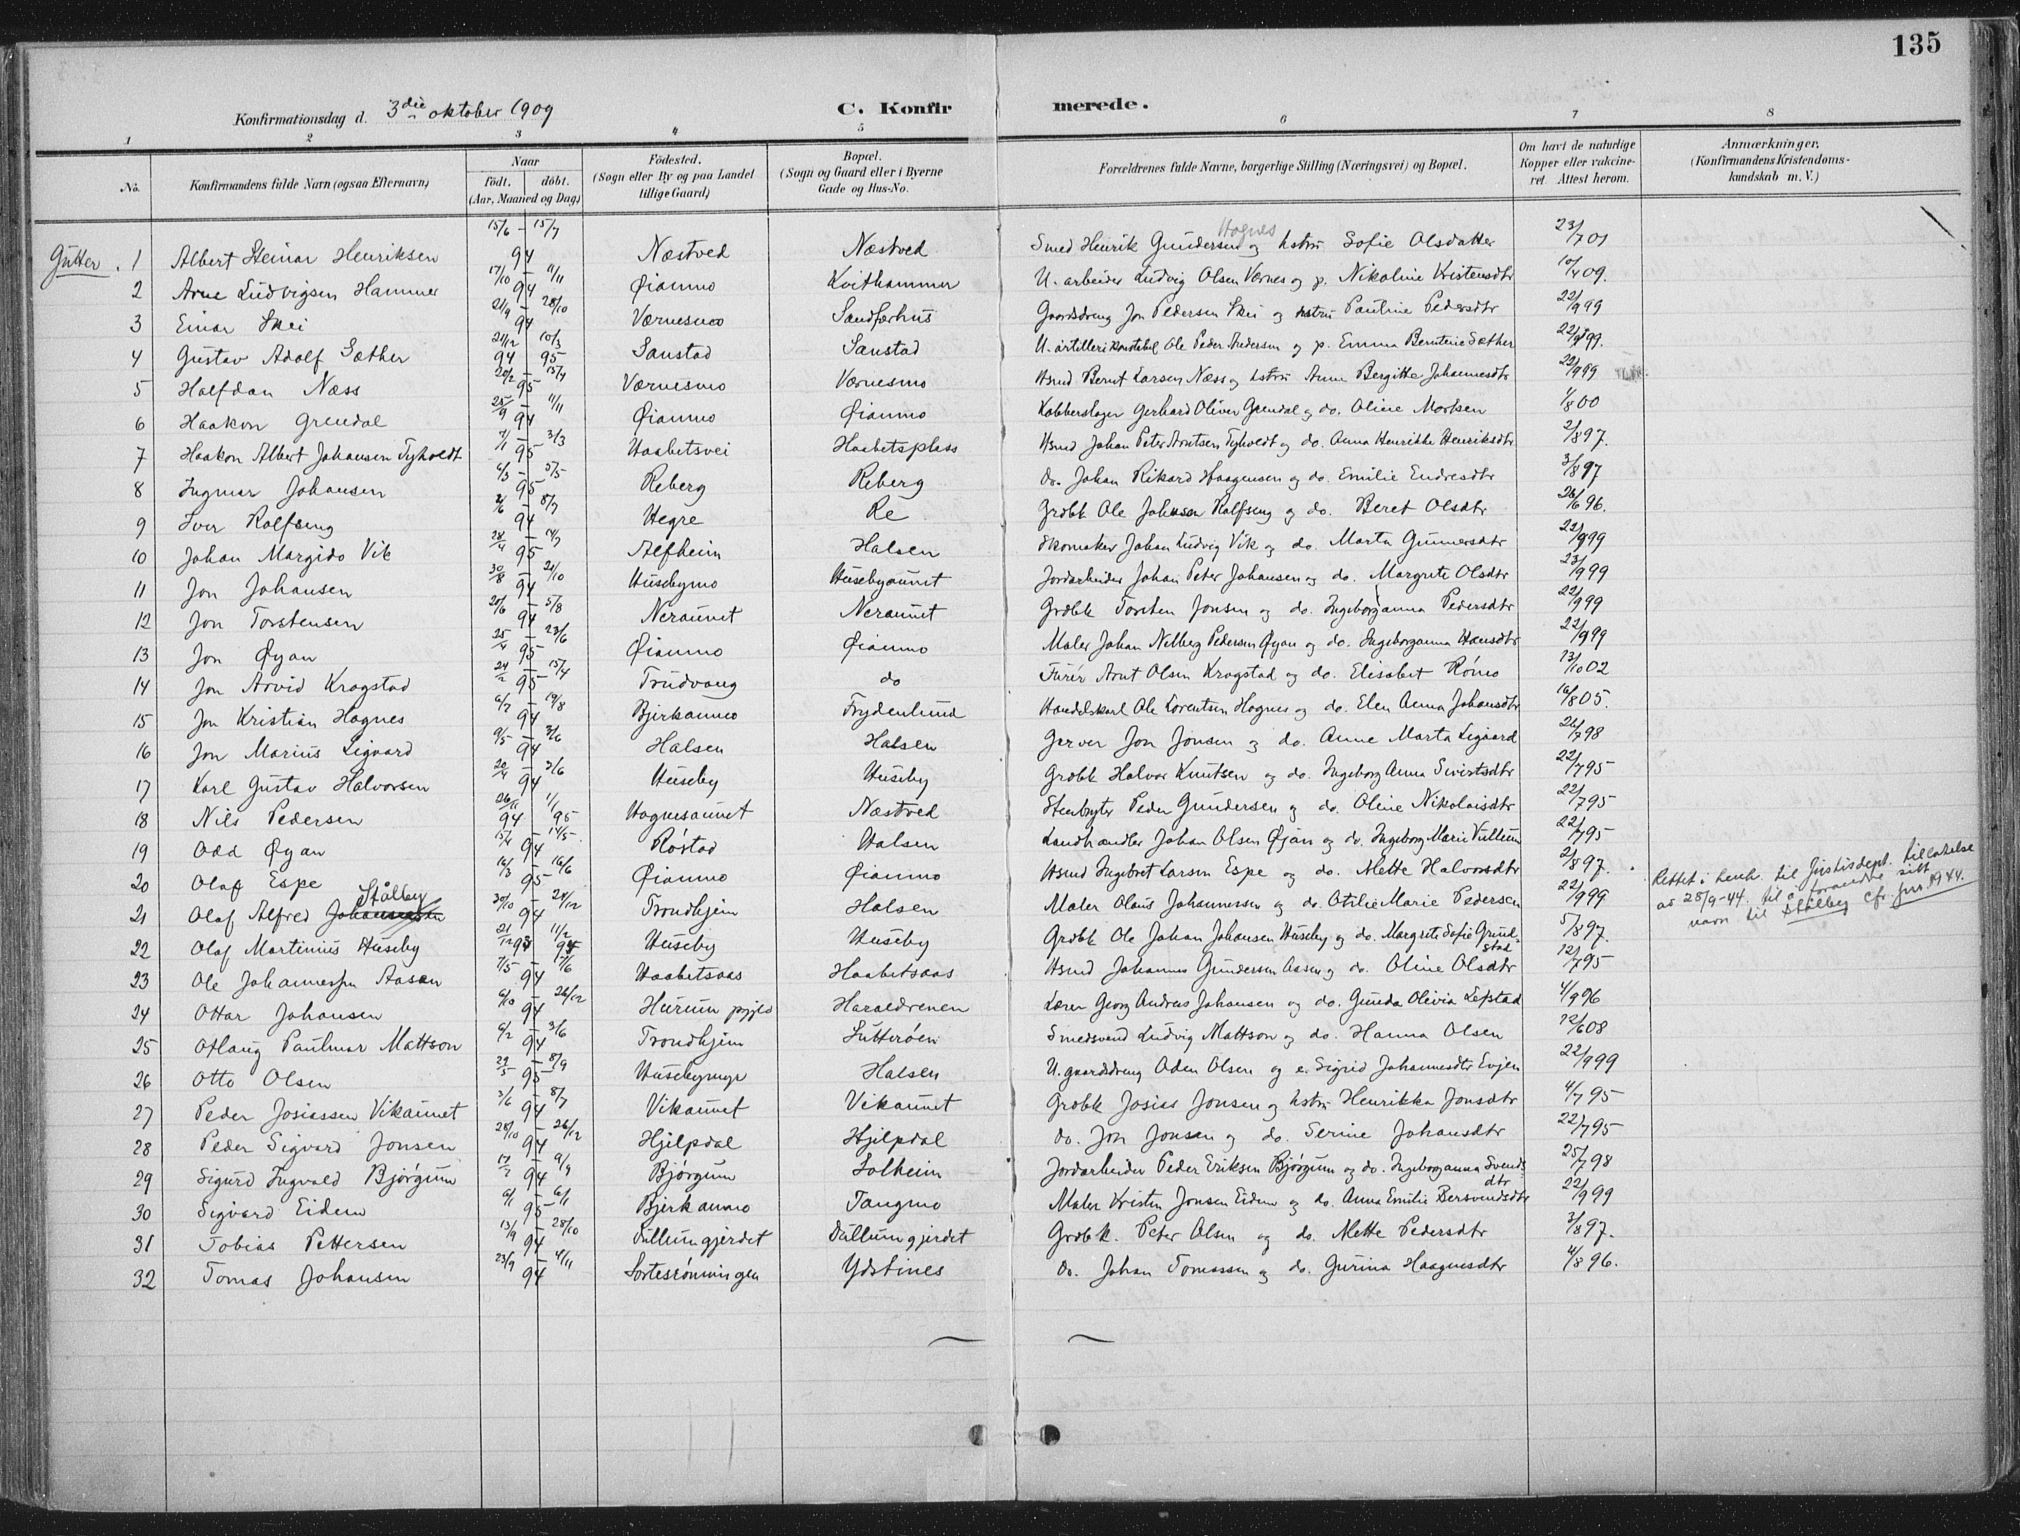 135
Konfirmationsdag d. 3die oktober 1909
C. Konfirmerede.
1 2 3 4 5 6 7 8
No. Konfirmandens fulde Navn (ogsaa Efternavn) Naar födt. döbt. (Aar, Maaned og Dag) Födested. (Sogn eller By og paa Landet tillige Gaard) Bopæl. (Sogn og Gaard eller i Byerne Gade og Hus-No. Forældrenes fulde Navne, borgerlige Stilling (Næringsvei) og Bopæl. Om havt de naturlige Kopper eller vakcineret. Attest herom. Anmærkninger. (Konfirmandens Kristendomskundskab m. V.)
Gutter. 1 Albert Steinar Henriksen 15/6 - 15/7 94 Næstved Næstved Smed Henrik Gundersen Hognes og hstru Sofie Olsdatter 23/7 01
2 Arne Ludvigsen Hammer 17/10 - 11/11 94 Øianmo Kvithammer U. arbeider Ludvig Olsen Værnes og p. Nikoline Kristensdtr 10/4 09.
3 Einar Skei 21/9 - 28/10 94 Værnesmo Sandferhus Gaardsdreng Jon Pedersen Skei og hstru Pauline Pedersdtr 22/9 99
4 Gustav Adolf Sæther 21/12 94 10/3 95 Sanstad Sanstad U. artillerikonstabel Ole Peder Andersen og p. Emma Berntine Sæther 22/9 99.
5 Halfdan Næss 20/2 - 15/4 95 Værnesmo Værnesmo Hsmd Bernt Larsen Næss og hstru Anne Bergitte Johannesdtr 22/9 99
6 Haakon Grendal 25/9 - 11/11 94 Øianmo Øianmo Kobberslager Gerhard Oliver Grendal og do. Oline Morksen 1/8 00
7 Haakon Albert Johansen Tyholdt 7/1 - 3/3 95 Haabetsvei Haabetsplass Hsmd Johan Peter Arntsen Tyholdt og do. Anna Henrikke Henriksdtr 2/8 97.
8 Ingmar Johansen 6/3 - 5/5 95 Reberg Reberg do. Johan Rikard Haagensen og do. Emilie Endresdtr 3/8 97
9 Iver Rolfseng 2/6 - 8/7 94 Hegre Re Grdbk Ole Johnsen Rolfseng og do. Beret Olsdtr 26/6 96.
10 Johan Margido Vik 28/4 - 14/7 95 Alfheim Halsen Skomaker Johan Ludvig Vik og do. Marta Gunnersdtr 22/9 99
11 Jon Johansen 30/8 - 21/10 94 Husebymo Husebyaunet Jordarbeider Johan Peter Johansen og do. Margrete Olsdtr 23/9 99
12 Jon Torstensen 20/6 - 5/8 94 Neraunet Neraunet Grdbk Torsten Jonsen og do. Ingeborganna Pedersdtr 22/9 99
13 Jon Øyan 25/4 - 23/6 95 Øianmo Øianmo Maler Johan Nelberg Pedersen Øyan og do. Ingeborganna Hansdtr 22/9 99
14 Jon Arvid Krogstad 24/2 - 15/4 95 Trudvang do Furér Arnt Olsen Krogstad og do. Elisabet Rømo 13/10 02
15 Jon Kristian Hognes 6/7 - 19/8 94 Bjerkanmo Frydenlund Handelskarl Ole Lorentsen Hognes og do. Elen Anna Johansdtr 16/8 05.
16 Jon Marius Sigvard 9/5 - 3/6 94 Halsen Halsen Garver Jon Jonsen og do. Anne Marta Sigaard 26/7 98
17 Karl Gustav Halvorsen 20/4 - 3/6 94 Huseby Huseby Grdbk Halvor Knutsen og do. Ingeborg Anna Sivertsdtr 22/7 95
18 Nils Pedersen 26/11 94 1/1 95 Hognesaunet Næstved Stenbryter Peder Gundersen og do. Oline Nikolaisdtr 22/7 95
19 Odd Øyan 15/4 - 14/5 94 Røstad Halsen Landhandler Johan Olsen Øjan og do. Ingeborg Marie Vullum 22/7 95
20 Olaf Espe 16/3 - 16/6 95 Øianmo Øianmo Hsmd Ingebret Larsen Espe og do. Mette Halvorsdtr 2/8 97.
21 Olaf Alfred Johannessen Stålby 30/10 - 24/12 94 Trondhjem Halsen Maler Olaus Johannessen og do. Otilie Marie Pedersen 22/9 99 Rettet i henh. til Justisdept. tillatelse av 25/9-44. til å forandre sitt navn til Stålby cfr. jnr. 1944.
22 Olaf Martinius Huseby 21/12 93 11/2 94 Huseby Huseby Grdbk Ole Johan Johansen Huseby og do. Margrete Sofie Grundstad 5/8 97.
23 Ole Johannessen Aasen 7/5 - 17/6 94 Haabetsaas Haabetsaas Hsmd Johannes Gundersen Aasen og do. Oline Olsdtr 12/7 95
24 Ottar Johansen 6/10 - 26/12 94 Hurum prgjld Haraldrenen Lærer Georg Andreas Johansen og do. Gunda Olivia Lefstad 4/9 06
25 Otlaug Paulmar Mattson 6/2 - 3/6 94 Trondhjem Sutterøen Smedsvend Ludvig Mattson og do. Hanna Olsen 12/6 08
26 Otto Olsen 29/5 - 8/9 95 Husebymyr Halsen U. gaardsdreng Oden Olsen og e. Sigrid Johannesdtr Evjen 22/9 99
27 Peder Josiassen Vikaunet 3/6 - 8/7 94 Vikaunet Vikaunet Grdbk Josias Jonsen og hstru Henrikka Jonsdtr 4/7 95
28 Peder Sigvard Jonsen 28/10 - 26/12 94 Hjelpdal Hjelpdal do. Jon Jonsen og do. Serine Johansdtr 22/7 95
29 Sigurd Ingvald Bjørgum 17/7 - 9/9 94 Bjørgum Solheim Jordarbeider Peder Eriksen Bjørgum og do. Ingeborganna Svendsdtr 25/7 98
30 Sigvard Eidem 6/1 - 6/1 95 Bjerkanmo Tangmo Maler Kristen Jonsen Eidem og do. Anna Emilie Bersvendsdtr 22/9 99
31 Tobias Pettersen 13/9 - 28/10 94 Dullumgjerdet Dullumgjerdet Grdbk. Peter Olsen og do. Mette Pedersdtr 3/8 97.
32 Tomas Johansen 23/9 - 4/11 94 Sortesrønningen Ydstines do. Johan Tomassen og do. Gurina Haagnesdtr 4/8 96.